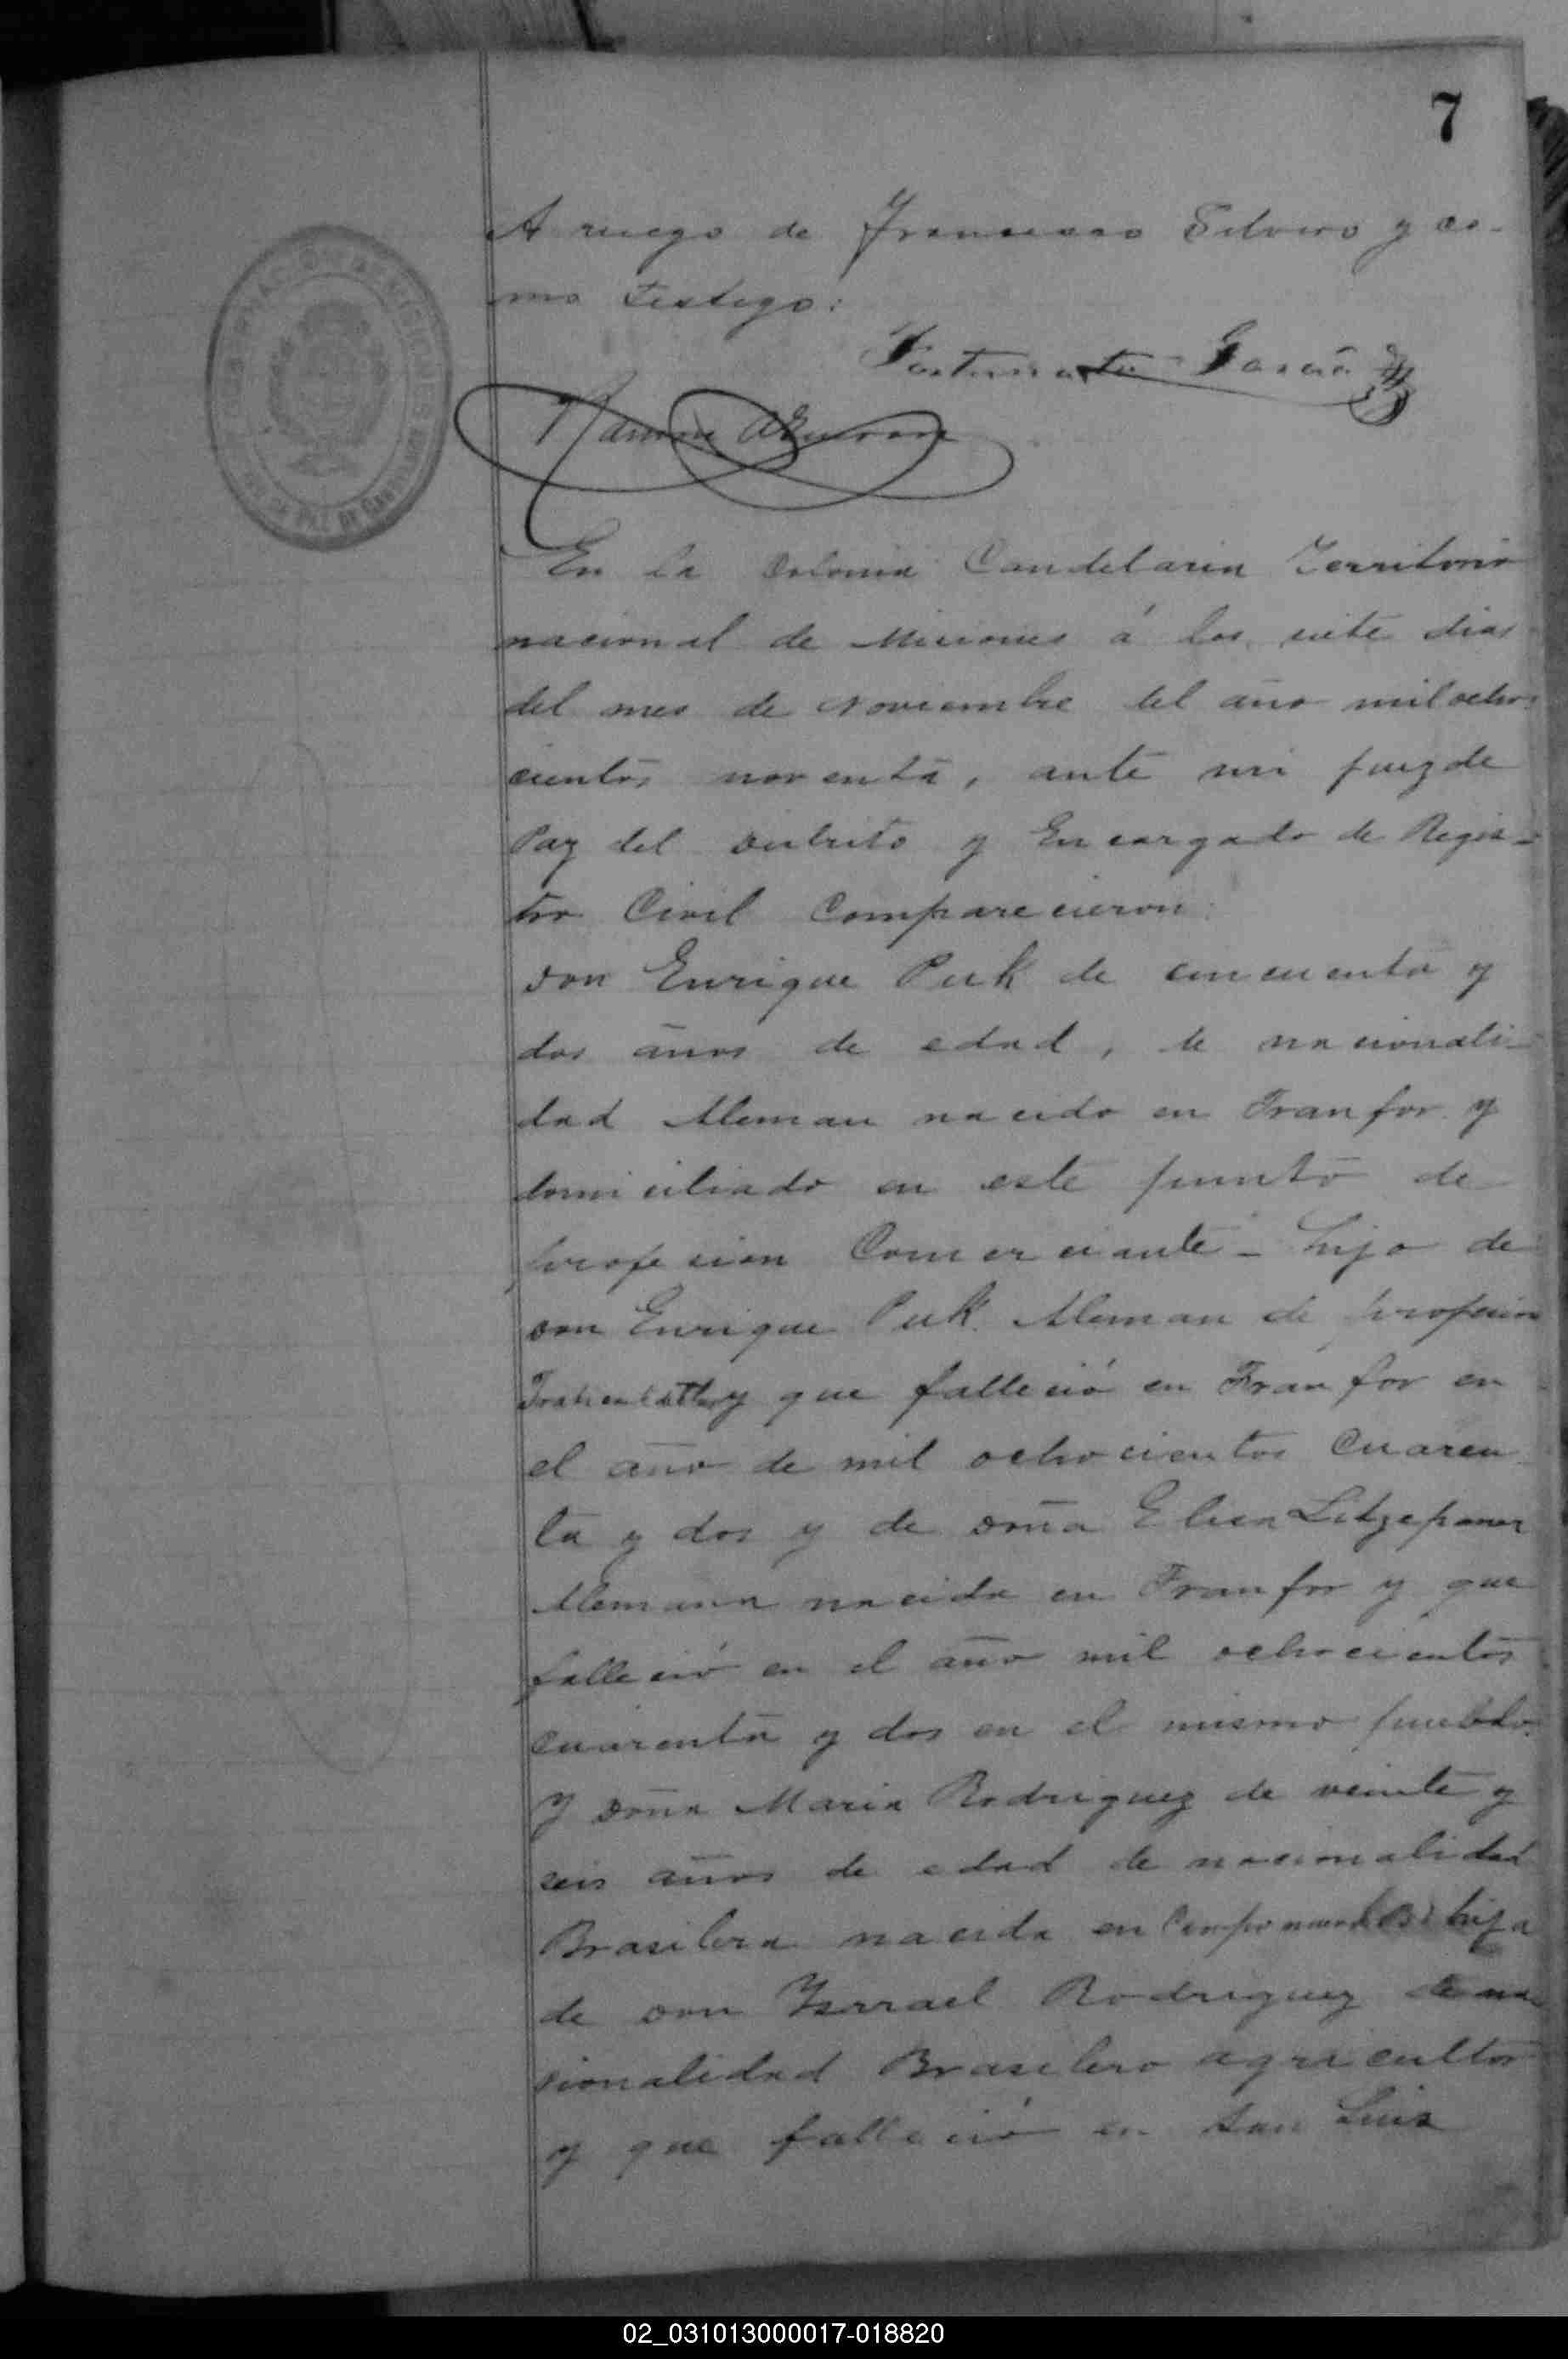 7
A ruego de Francisco Silvero y co-
mo testigo:
Fortunato Garcia
Ramon
En la Colonia Candelaria Territorio
nacional de Misiones á los siete dias
del mes de Noviembre del año mil ocho
cientos noventa, ante mi Juez de
Paz del distrito y Encargado de Regis-
tro Civil Comparecieron:
Don Enrique Puk de cincuenta y
dos años de edad, de nacionali-
dad Aleman nacido en Franfor y
domiciliado en este punto de
profesion Comerciante - hijo de
don Enrique Puk Aleman de profesion
y que falleció en Franfor en
el año de mil ochocientos Cuaren
ta y dos y de doña Elisa
Alemana nacida en Franfor y que
falleció en el año mil ochocientos
cuarenta y dos en el mismo pueblo.
Y doña Maria Rodriguez de veinte y
seis años de edad de nacionalidad
Brasilera nacida en hija
de don Ysrrael Rodriguez de na
cionalidad Brasilero agricultor
y que falleció en San Luis
02_031013000017-018820